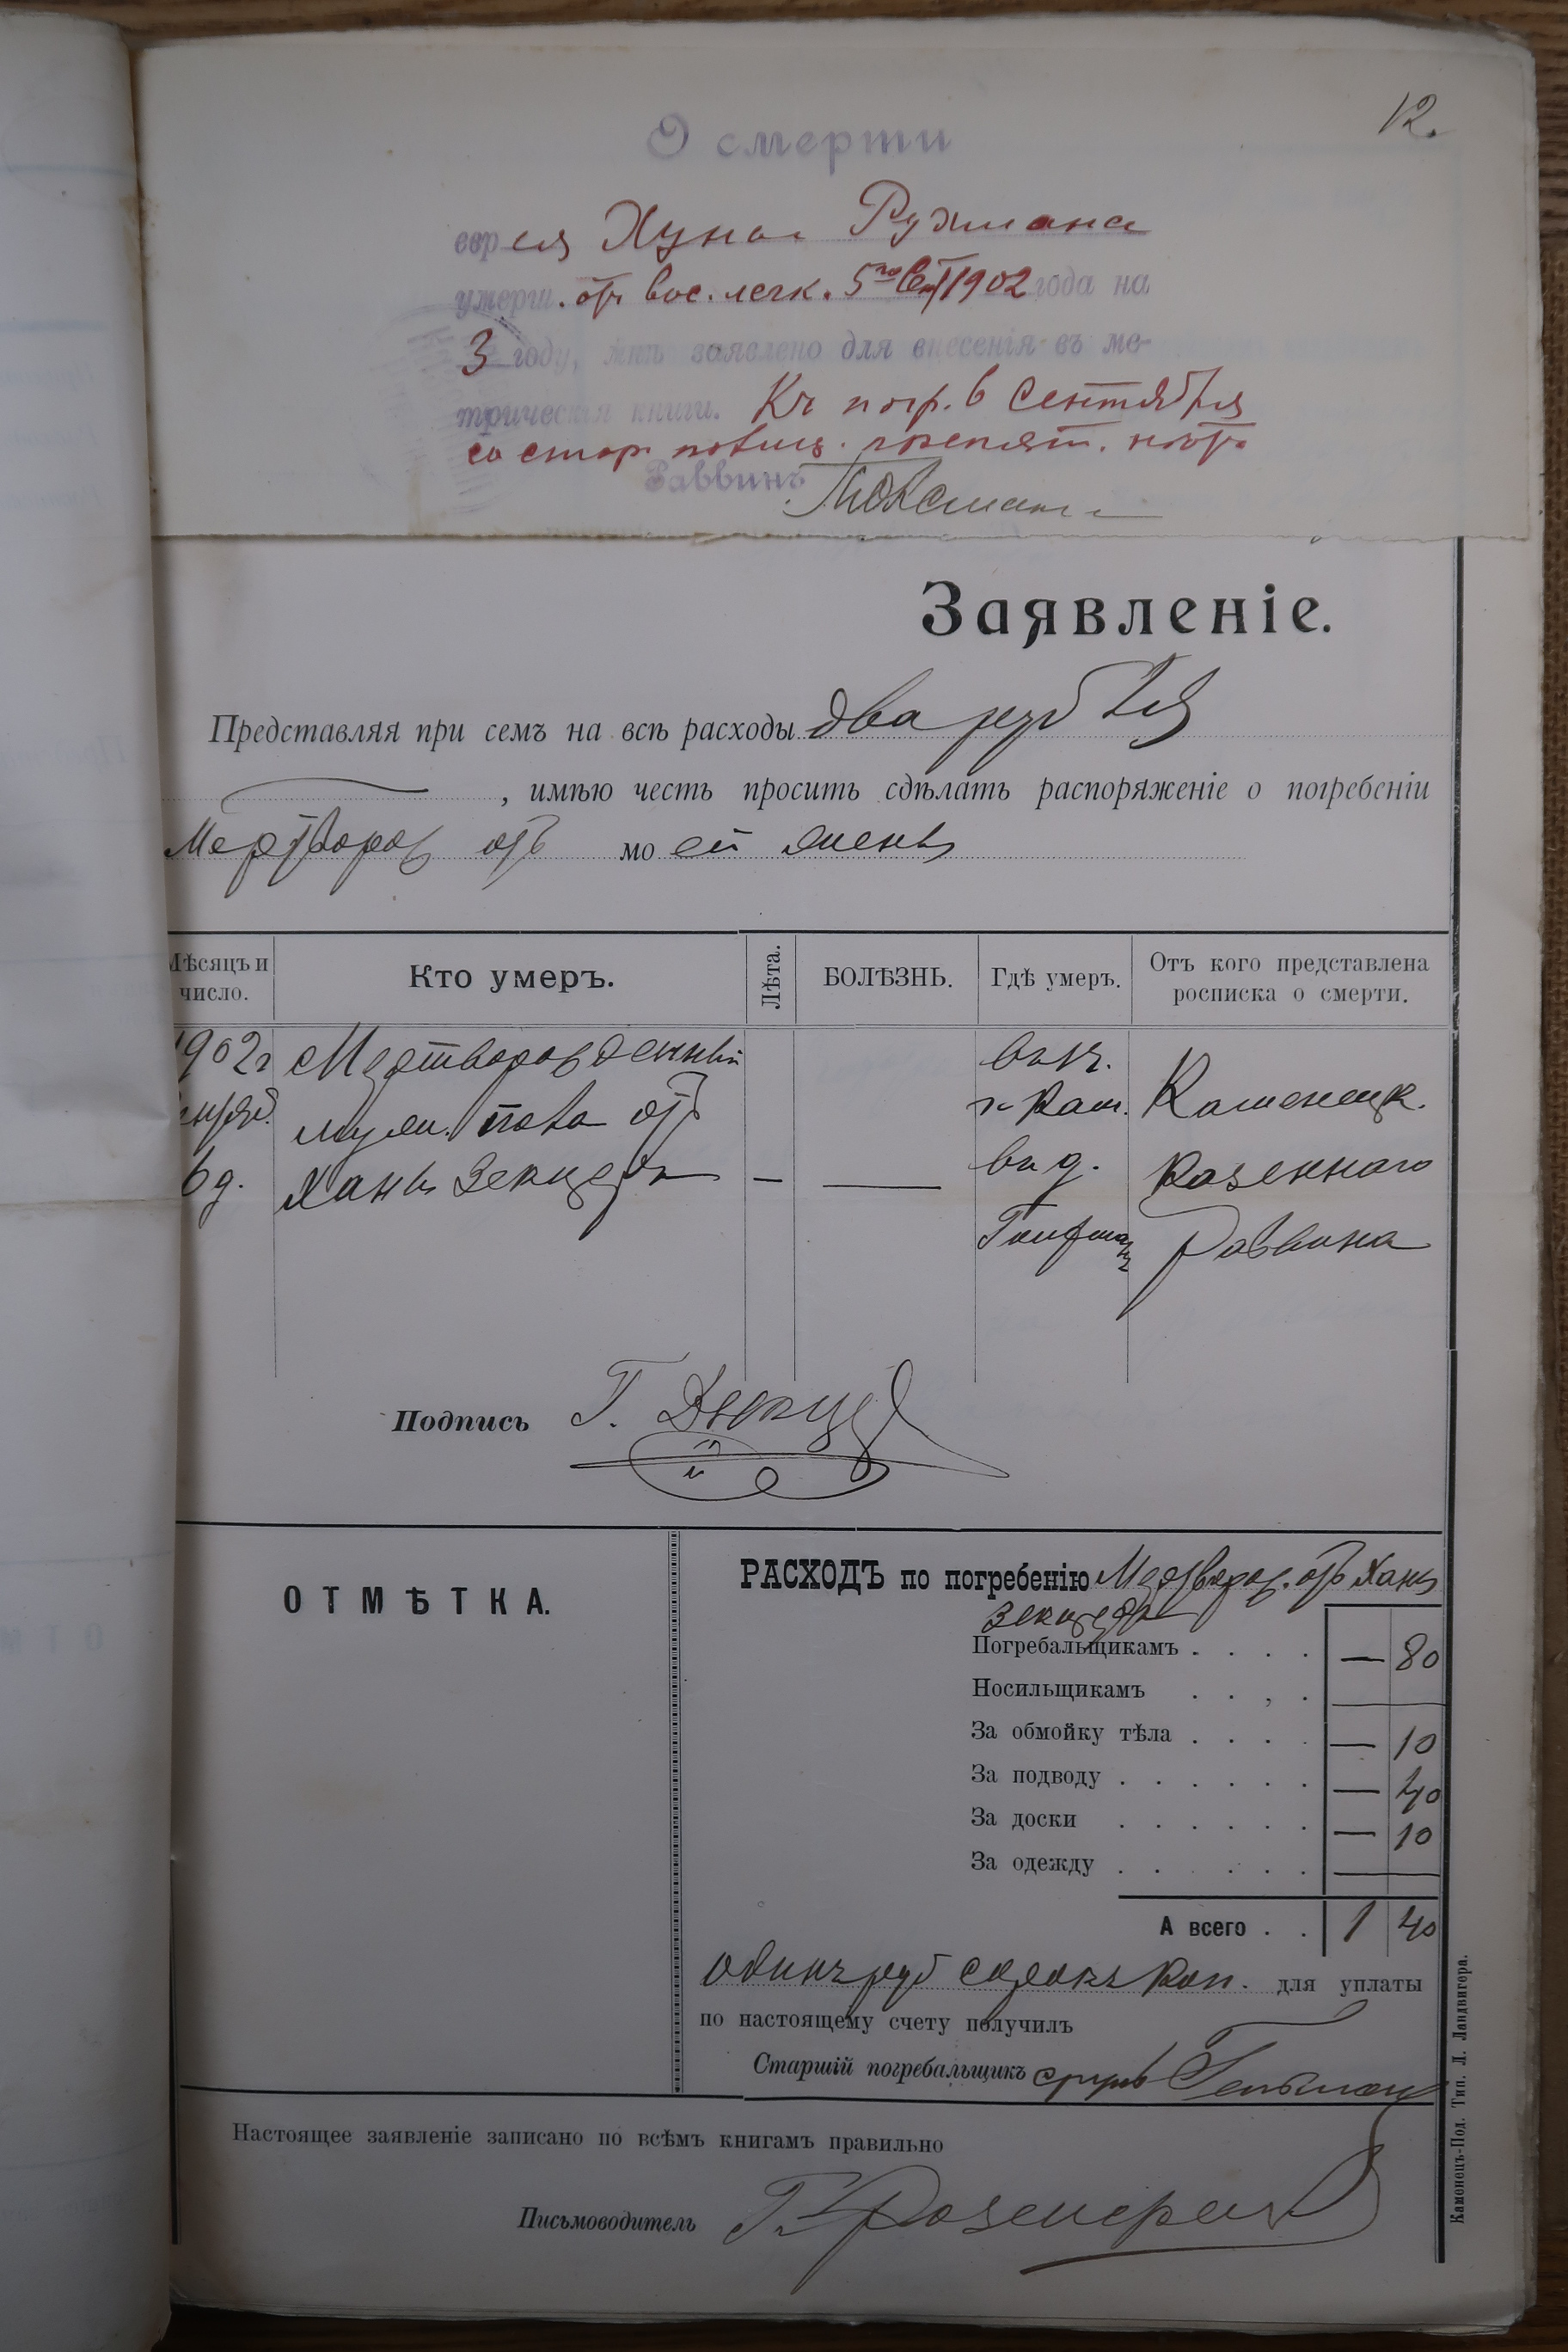 12.
О смерти
еврея Хуна Ружмана
умерш. отъ вос. легк. 5го Сент 1902 года на
3 году, мнѣ заявлено для внесенія въ ме-
трическія книги. Къ погр. 6 Сентября
со стор. полиц. препят. нѣтъ
Раввинъ
Заявленіе.
Представляя при семъ на всѣ расходы два рубля
, имѣю честь просить сдѣлать распоряженіе о погребеніи
Мертворож отъ моей жены
Мѣсяцъ и число. Кто умеръ. Лѣта. БОЛѢЗНЬ. Гдѣ умеръ. Отъ кого представлена росписка о смерти.
1902г Мертворожденный въ г.
муж. пола отъ Кам. Каменецк.
6 д. Ханы Зекцеръ — — въ д. Казеннаго
Гоифман Раввина
Подпись Г. Зекцер
ОТМѢТКА.
РАСХОДЪ по погребенію Мертворож. отъ Ханы
Зекцеръ
Погребальщикамъ . . . . — 80
Носильщикамъ . . , . —
За обмойку тѣла . . . . — 10
За подводу . . . . . . — 40
За доски . . . . . . — 10
За одежду . . . . . . —
А всего . . 1 40
Одинъ руб сорокъ коп. для уплаты
по настоящему счету получилъ
Старшій погребальщикъ Сруль Гельман
Настоящее заявленіе записано по всѣмъ книгамъ правильно
Письмоводитель
Каменецъ-Под. Тип. Л. Ландвигера.